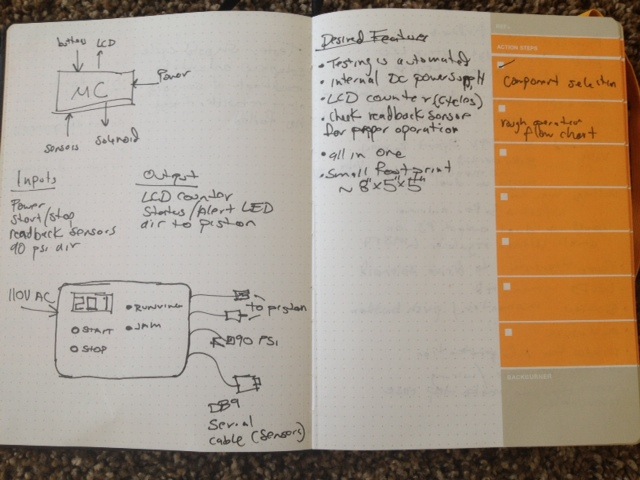 buttons LCD
μC
Power
sensors solenoid
Inputs
Power
Start/Stop
readback sensors
90 psi air
Output
LCD counter
Status/Alert LED
air to piston
110V AC
201
RUNNING
START
JAM
STOP
to piston
90 PSI
DB9
Serial
cable (sensors)
Desired Features
• Testing is automated
• internal DC power supply
• LCD counter (cycles)
• Check readback sensor
for proper operation
• all in one
• Small footprint
~ 8"x5"x5"
ACTION STEPS
Component selection
rough operation
flow chart
BACKBURNER